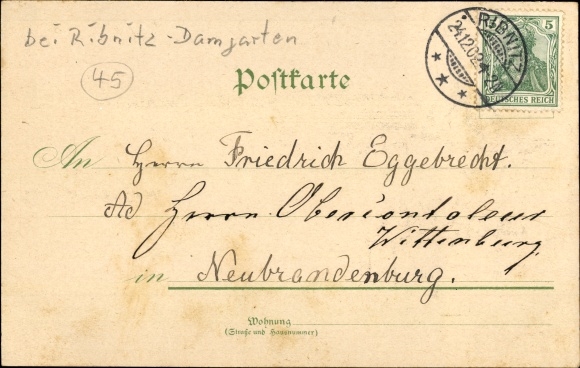 bei Ribnitz-Damgarten
45
Postkarte
RIBNITZ
24.12.02
5
DEUTSCHES REICH
An Herrn Friedrich Eggebrecht.
Ad Herrn
Wittenburg
in Neubrandenburg.
Wohnung
(Straße und Hausnummer)